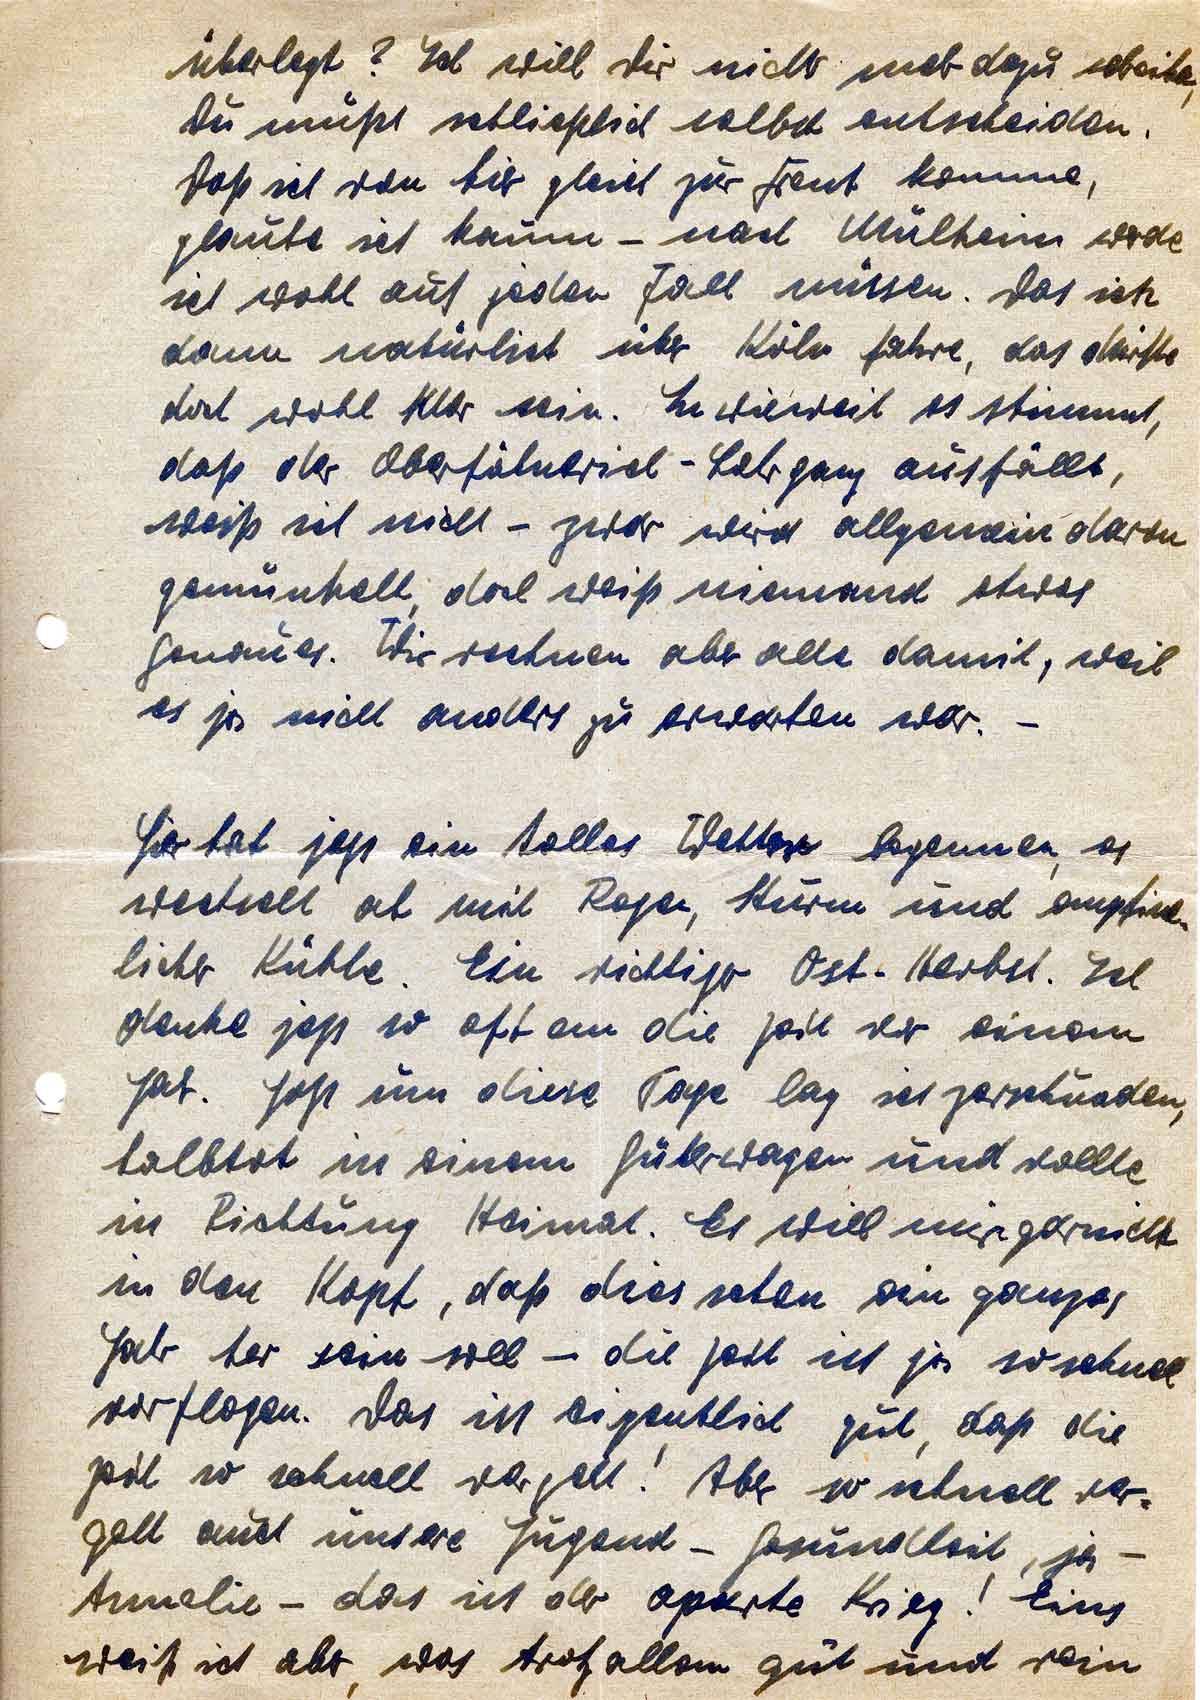 überlegt? Ich will Dir nichts mehr dazu schreiben,
Du mußt schließlich selbst entscheiden.
Daß ich von hier gleich zur Front komme,
glaube ich kaum – nach Mülheim werde
ich wohl auf jeden Fall müssen. Das ich
dann natürlich über Köln fahre, das dürfte
doch wohl klar sein. In wieweit es stimmt,
daß der Oberfähnrich-Lehrgang ausfällt,
weiß ich nicht – zwar wird allgemein davon
gemunkelt, doch weiß niemand etwas
genaues. Wir rechnen aber alle damit, weil
es ja nicht anders zu erwarten war. –
Hier hat jetzt ein tolles Wetter begonnen, es
wechselt ab mit Regen, Sturm und empfind-
licher Kühle. Ein richtiger Ost-Herbst. Ich
denke jetzt so oft an die Zeit vor einem
Jahr. Jetzt um diese Tage lag ich zerschunden,
halbtot in einem Güterwagen und rollte
in Richtung Heimat. Es will mir garnicht
in den Kopf, daß dies schon ein ganzes
Jahr her sein soll – die Zeit ist ja so schnell
verflogen. Das ist eigentlich gut, daß die
Zeit so schnell vergeht! Aber so schnell ver-
geht auch unsere Jugend – Gesundheit, ja –
Annelie – das ist der aparte Krieg! Eins
weiß ich aber, was trotz allem gut und rein